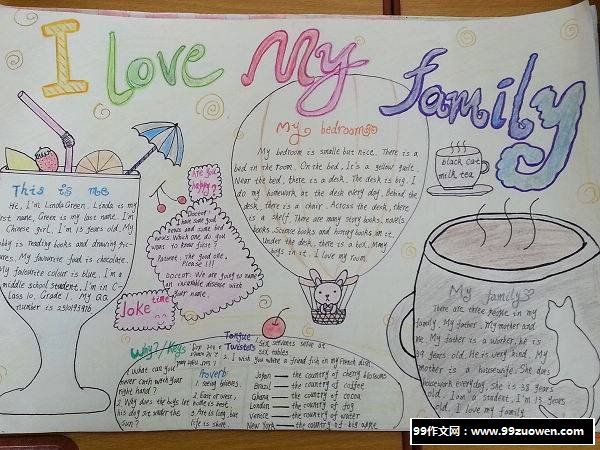 I Love My family
This is me
Hi, I'm Linda Green. Linda is my
first name, Green is my last name. I'm
Chinese girl. I'm 13 years old. My
hobby is reading books and drawing pic-
tures. My favourite food is chocolate.
My favourite colour is blue. I'm a
middle school student. I'm in C-
lass 10, Grade 1. My QQ
number is 2310193916
Are you
happy?
Doctor: I
have some good
news and some bad
news. Which one do you
want to know first?
Patient: The good one,
Please!!!
Doctor: We are going to name
an incurable disease with
your name.
Joke time
My bedroom
My bedroom is small but nice. There is a
bed in the room. On the bed, It's a yellow quilt.
Near the bed, there is a desk. The desk is big. I
do my homework at the desk every day. Behind the
desk, there is a chair. Across the desk, there
is a shelf. There are many story books, novels
books, Science books and history books on it.
Under the desk, there is a box. Many
toys in it. I love my room.
black cat
milk tea
My family
There are three people in my
family. My father, My mother and
me. My father is a worker, he is
39 years old. He is very kind. My
mother is a housewife. She does
housework everyday. She is 38 years
old. I am a student. I'm 13 years
old. I love my family.
Why?/Keys
1. What can you
never catch with your
right hand?
2. Why does the boys let
his dog at under the
sun?
Proverb
1. seeing believes.
2. East or west,
home is best.
3. Art is long, but
life is short.
Tongue
Twisters
1. Six servants serve at
six tables
2. I wish you were a friend fish in my French dish.
Japan — the country of cherry blossoms
Brazil — the country of coffee
Ghana — the country of cocoa
London — the country of fog
Venice — the country of water
New York — the country of big apple
99作文网:www.99zuowen.com